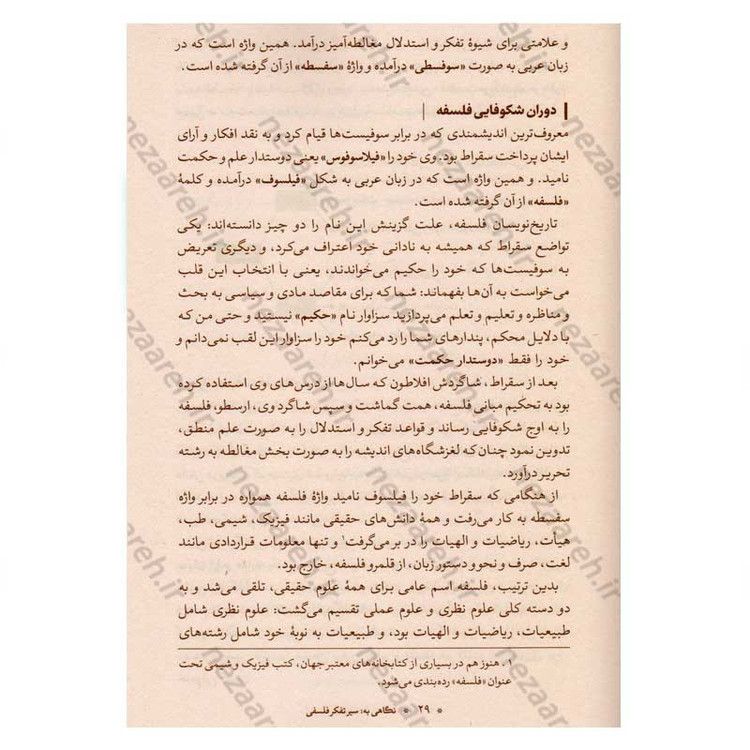 و علامتی برای شیوهٔ تفکر و استدلال مغالطه‌آمیز درآمد. همین واژه است که در
زبان عربی به صورت «سوفسطی» درآمده و واژهٔ «سفسطه» از آن گرفته شده است.
دوران شکوفایی فلسفه
معروف‌ترین اندیشمندی که در برابر سوفیست‌ها قیام کرد و به نقد افکار و آرای
ایشان پرداخت سقراط بود. وی خود را «فیلاسوفوس» یعنی دوستدار علم و حکمت
نامید. و همین واژه است که در زبان عربی به شکل «فیلسوف» درآمده و کلمهٔ
«فلسفه» از آن گرفته شده است.
تاریخ‌نویسان فلسفه، علت گزینش این نام را دو چیز دانسته‌اند: یکی
تواضع سقراط که همیشه به نادانی خود اعتراف می‌کرد، و دیگری تعریض
به سوفیست‌ها که خود را حکیم می‌خواندند، یعنی با انتخاب این قلب
می‌خواست به آن‌ها بفهماند: شما که برای مقاصد مادی و سیاسی به بحث
و مناظره و تعلیم و تعلم می‌پردازید سزاوار نام «حکیم» نیستید و حتی من که
با دلایل محکم، پندارهای شما را رد می‌کنم خود را سزاوار این لقب نمی‌دانم و
خود را فقط «دوستدار حکمت» می‌خوانم.
بعد از سقراط، شاگردش افلاطون که سال‌ها از درس‌های وی استفاده کرده
بود به تحکیم مبانی فلسفه، همت گماشت و سپس شاگرد وی، ارسطو، فلسفه
را به اوج شکوفایی رساند و قواعد تفکر و استدلال را به صورت علم منطق،
تدوین نمود چنان‌که لغزشگاه‌های اندیشه را به صورت بخش مغالطه به رشته
تحریر درآورد.
از هنگامی که سقراط خود را فیلسوف نامید واژهٔ فلسفه همواره در برابر واژه
سفسطه به کار می‌رفت و همهٔ دانش‌های حقیقی مانند فیزیک، شیمی، طب،
هیأت، ریاضیات و الهیات را در بر می‌گرفت۱ و تنها معلومات قراردادی مانند
لغت، صرف و نحو و دستور زبان، از قلمرو فلسفه، خارج بود.
بدین ترتیب، فلسفه اسم عامی برای همهٔ علوم حقیقی، تلقی می‌شد و به
دو دسته کلی علوم نظری و علوم عملی تقسیم می‌گشت: علوم نظری شامل
طبیعیات، ریاضیات و الهیات بود، و طبیعیات به نوبهٔ خود شامل رشته‌های
۱. هنوز هم در بسیاری از کتابخانه‌های معتبر جهان، کتب فیزیک و شیمی تحت
عنوان «فلسفه» رده‌بندی می‌شود.
* ۲۹ * نگاهی به: سیر تفکر فلسفی
nezaareh.ir